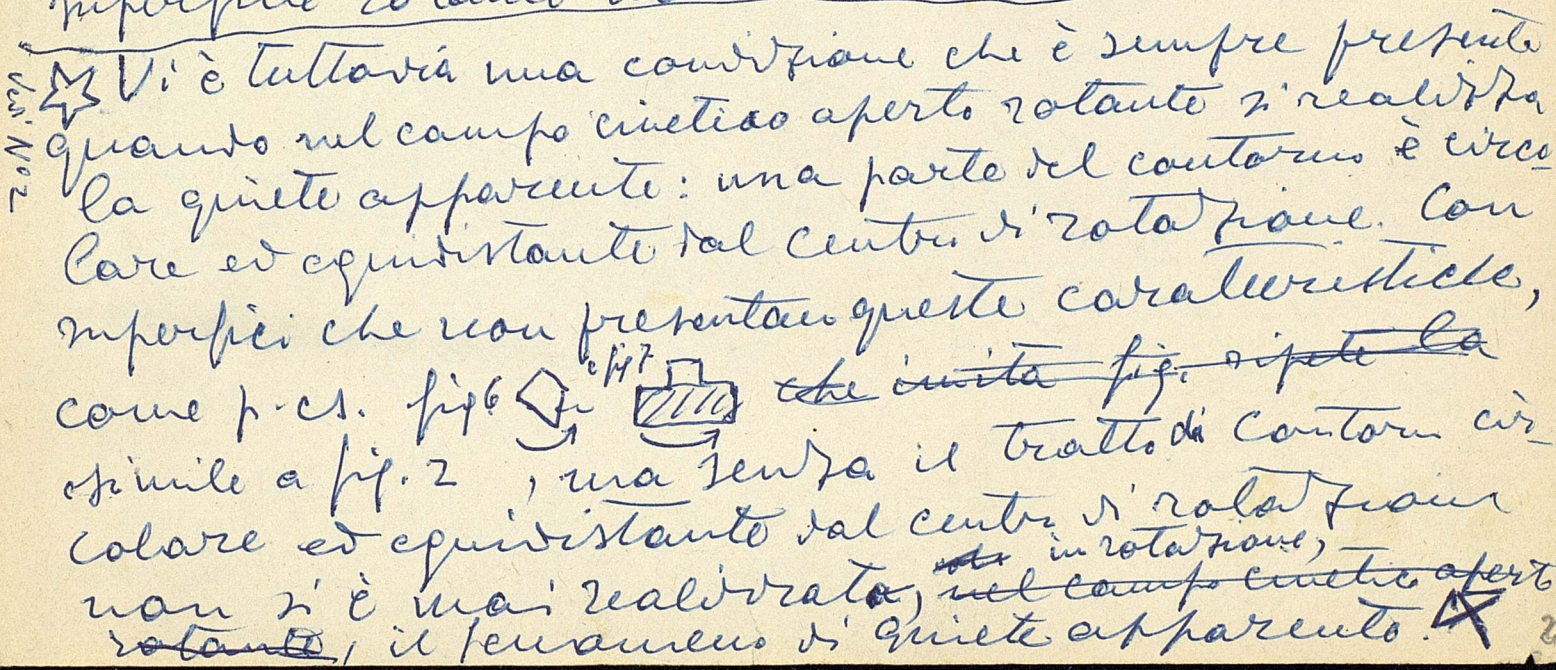 superfici rotanti
Vi è tuttavia una condizione che è sempre presente
quando nel campo cinetico aperto rotante si realizza
la quiete apparente: una parte del contorno è circo-
lare ed equidistante dal centro di rotazione. Con
superfici che non presentano queste caratteristiche,
come p. es. fig 6 e fig 7 che imita fig. ripete la
simile a fig. 2 , ma senza il tratto di contorno cir-
colare ed equidistante dal centro di rotazione
in rotazione,
non si è mai realizzato, nel campo cinetico aperto
rotante, il fenomeno di quiete apparente.